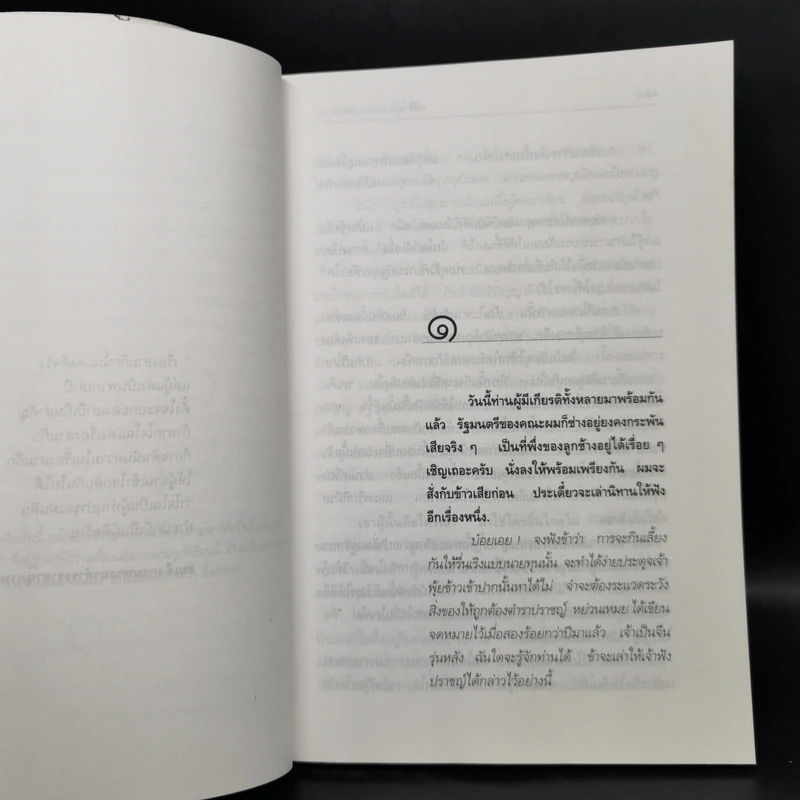 ๑
วันนี้ท่านผู้มีเกียรติทั้งหลายมาพร้อมกัน
แล้ว รัฐมนตรีของคณะผมก็ช่างอยู่ยงคงกระพัน
เสียจริง ๆ เป็นที่พึ่งของลูกช้างอยู่ได้เรื่อย ๆ
เชิญเถอะครับ นั่งลงให้พร้อมเพรียงกัน ผมจะ
สั่งกับข้าวเสียก่อน ประเดี๋ยวจะเล่านิทานให้ฟัง
อีกเรื่องหนึ่ง.
บ๋อยเอย ! จงฟังข้าว่า การจะกินเลี้ยง
กันให้รื่นเริงแบบนายทุนนั้น จะทำได้ง่ายประดุจเจ้า
พุ้ยข้าวเข้าปากนั้นหาได้ไม่ จำจะต้องระแวดระวัง
สิ่งของให้ถูกต้องตำราปราชญ์ หย่วนเหมย ได้เขียน
จดหมายไว้เมื่อสองร้อยกว่าปีมาแล้ว เจ้าเป็นจีน
รุ่นหลัง ฉันใดจะรู้จักท่านได้ ข้าจะเล่าให้เจ้าฟัง
ปราชญ์ได้กล่าวไว้อย่างนี้